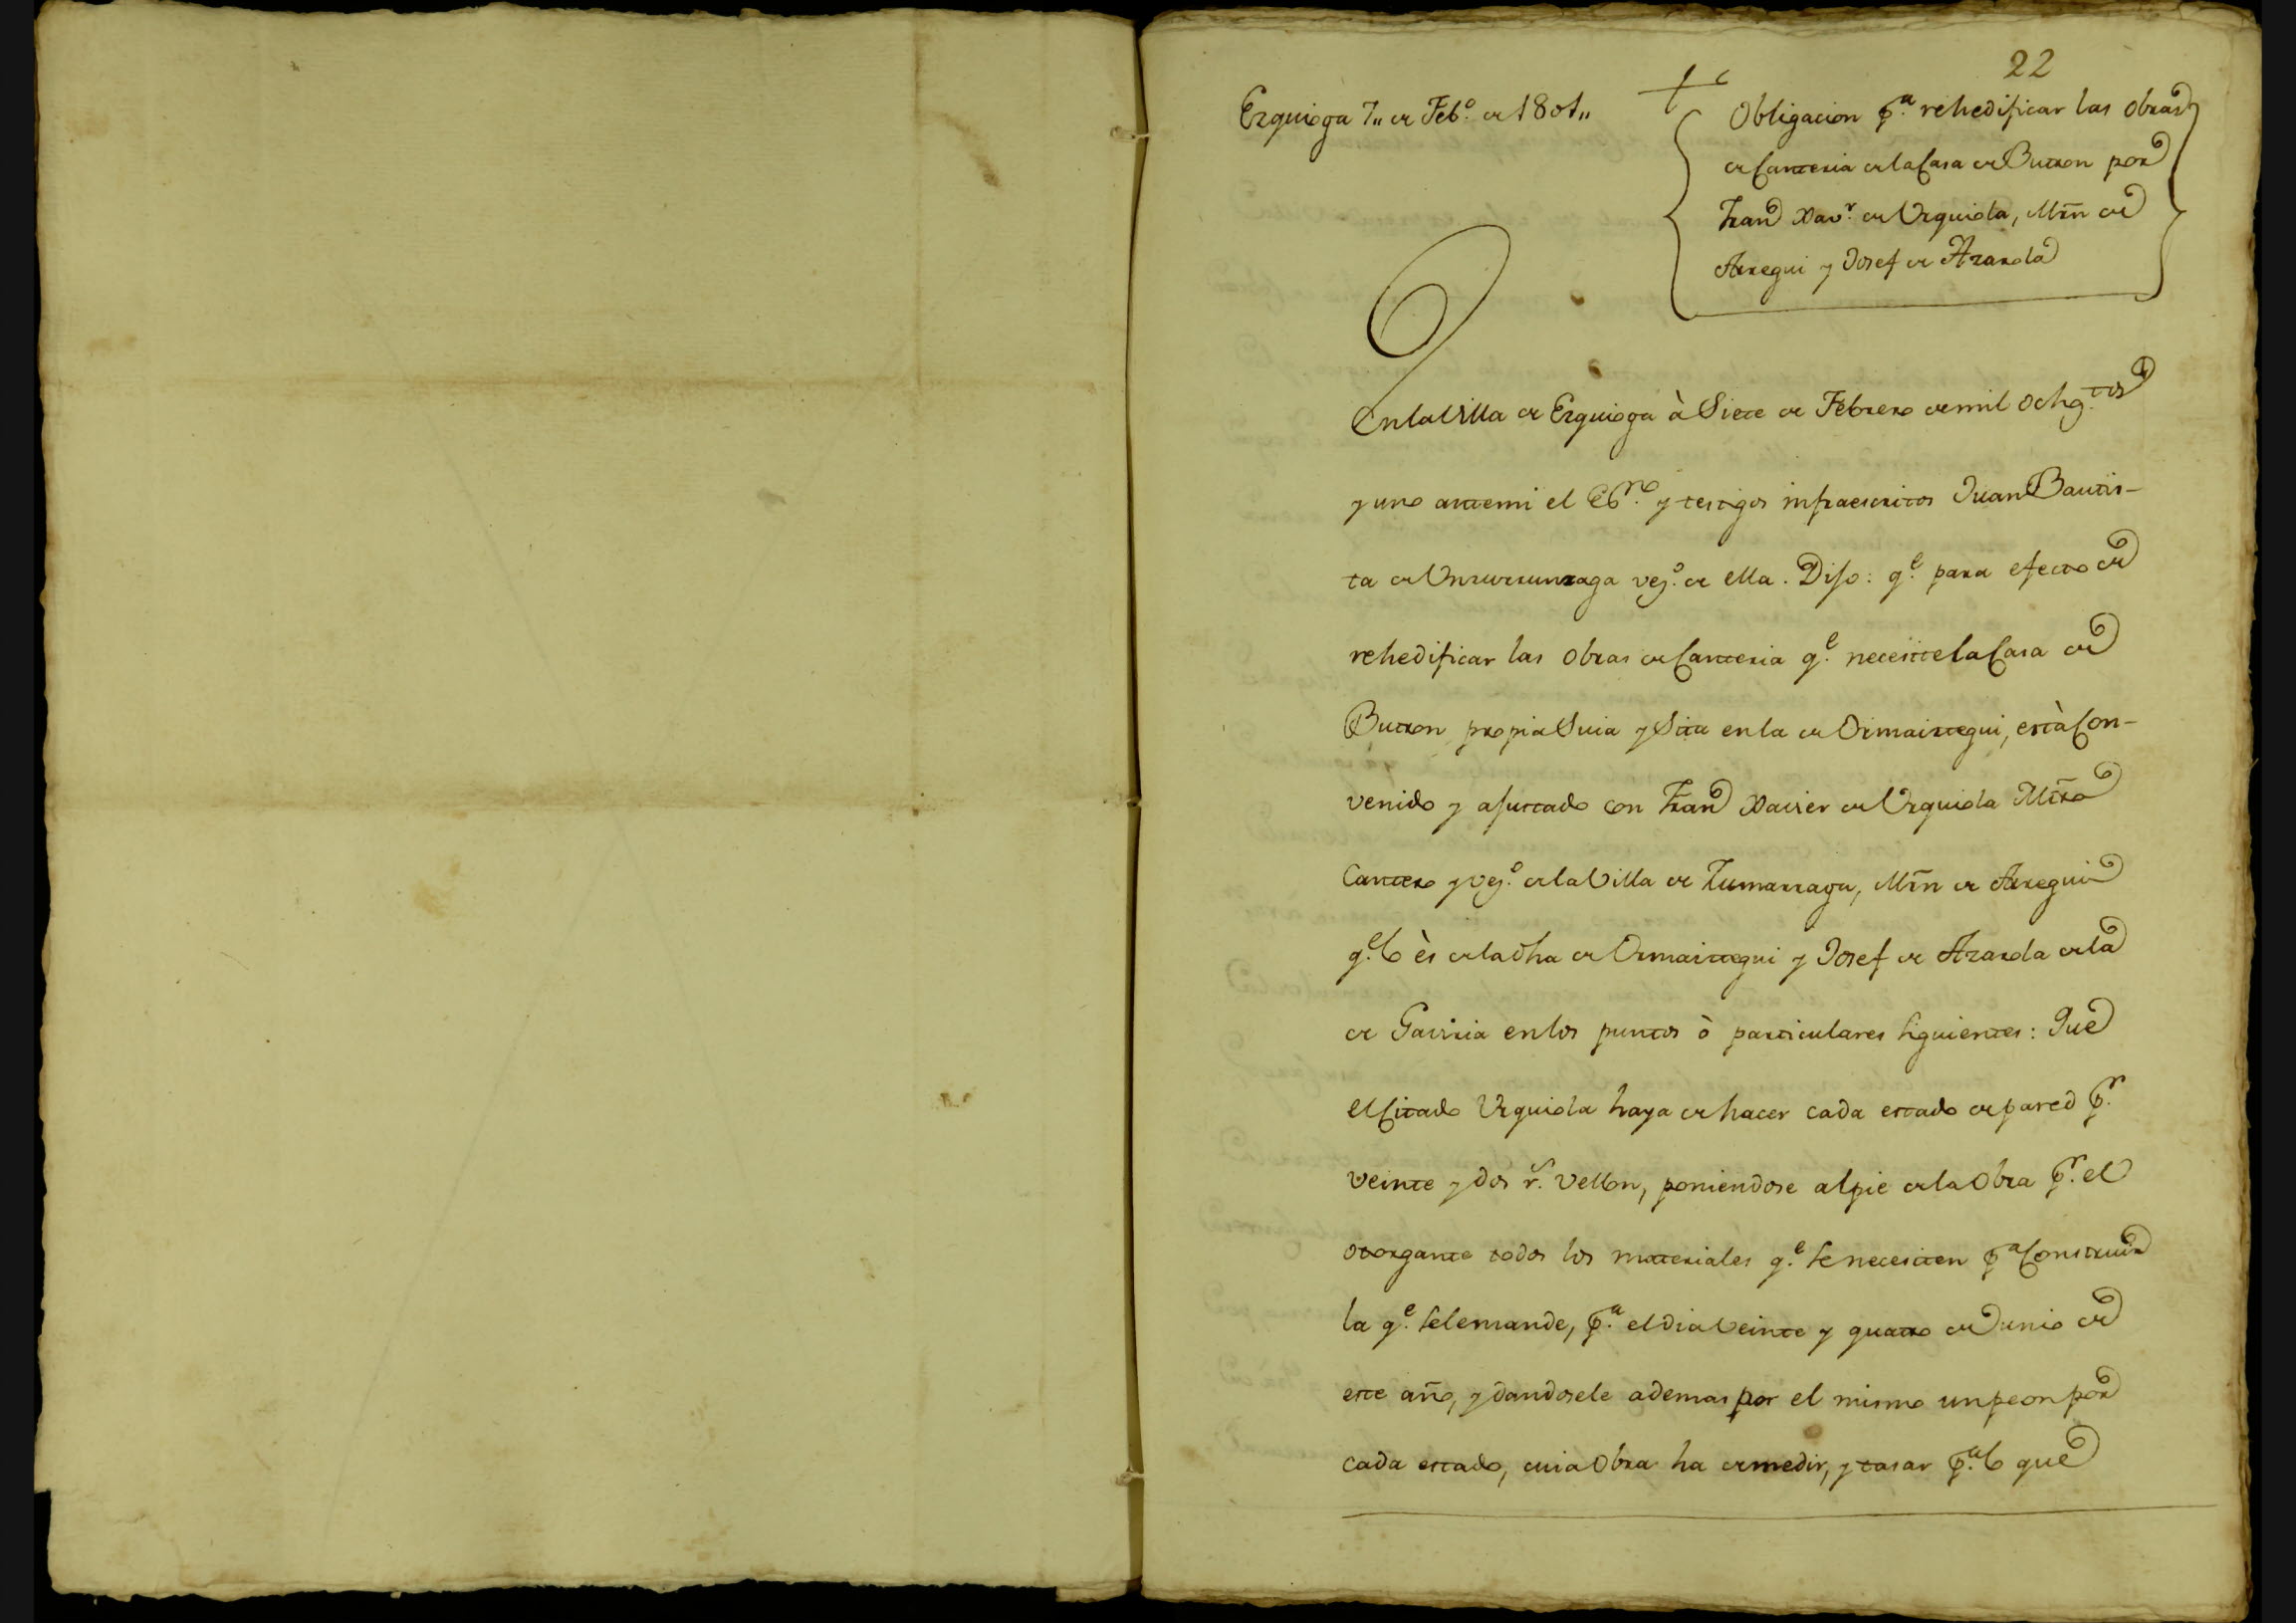 22
Ezquioga 7,, de Feb.º de 1801,,
Obligacion p.ª rehedificar las obras
de Canteria de la Casa de Butron por
Fran.co Xav.r de Urquiola, Mrn de
Arregui y Josef de Azarola
En la Villa de Ezquioga à Siete de Febrero de mil ochq.tos
y uno ante mi el Es.no y testigos infraescritos Juan Bautis-
ta de Unzurrunzaga vez.º de ella. Dijo: q.e para efecto de
rehedificar las obras de Canteria q.e necesite la Casa de
Butron propia Suia y Sita en la de Ormaiztegui, està Con-
venido y ajustado con Fran.co Xavier de Urquiola Mtro
Cantero y vez.º de la Villa de Zumarraga, Mrn de Arregui
q.e lo ès de la dha de Ormaiztegui y Josef de Azarola de la
de Gaviria en los puntos ò particulares siguientes: Que
el Citado Urquiola haya de hacer cada estado de pared p.r
veinte y dos r.s vellon, poniendose al pie de la Obra p.r el
otorgante todos los materiales q.e se necesiten p.ª Construir
la q.e se le mande, p.ª el dia veinte y quatro de Junio de
este año, y dandosele ademas por el mismo un peon por
cada estado, cuia Obra ha de medir, y tasar p.ª lo que